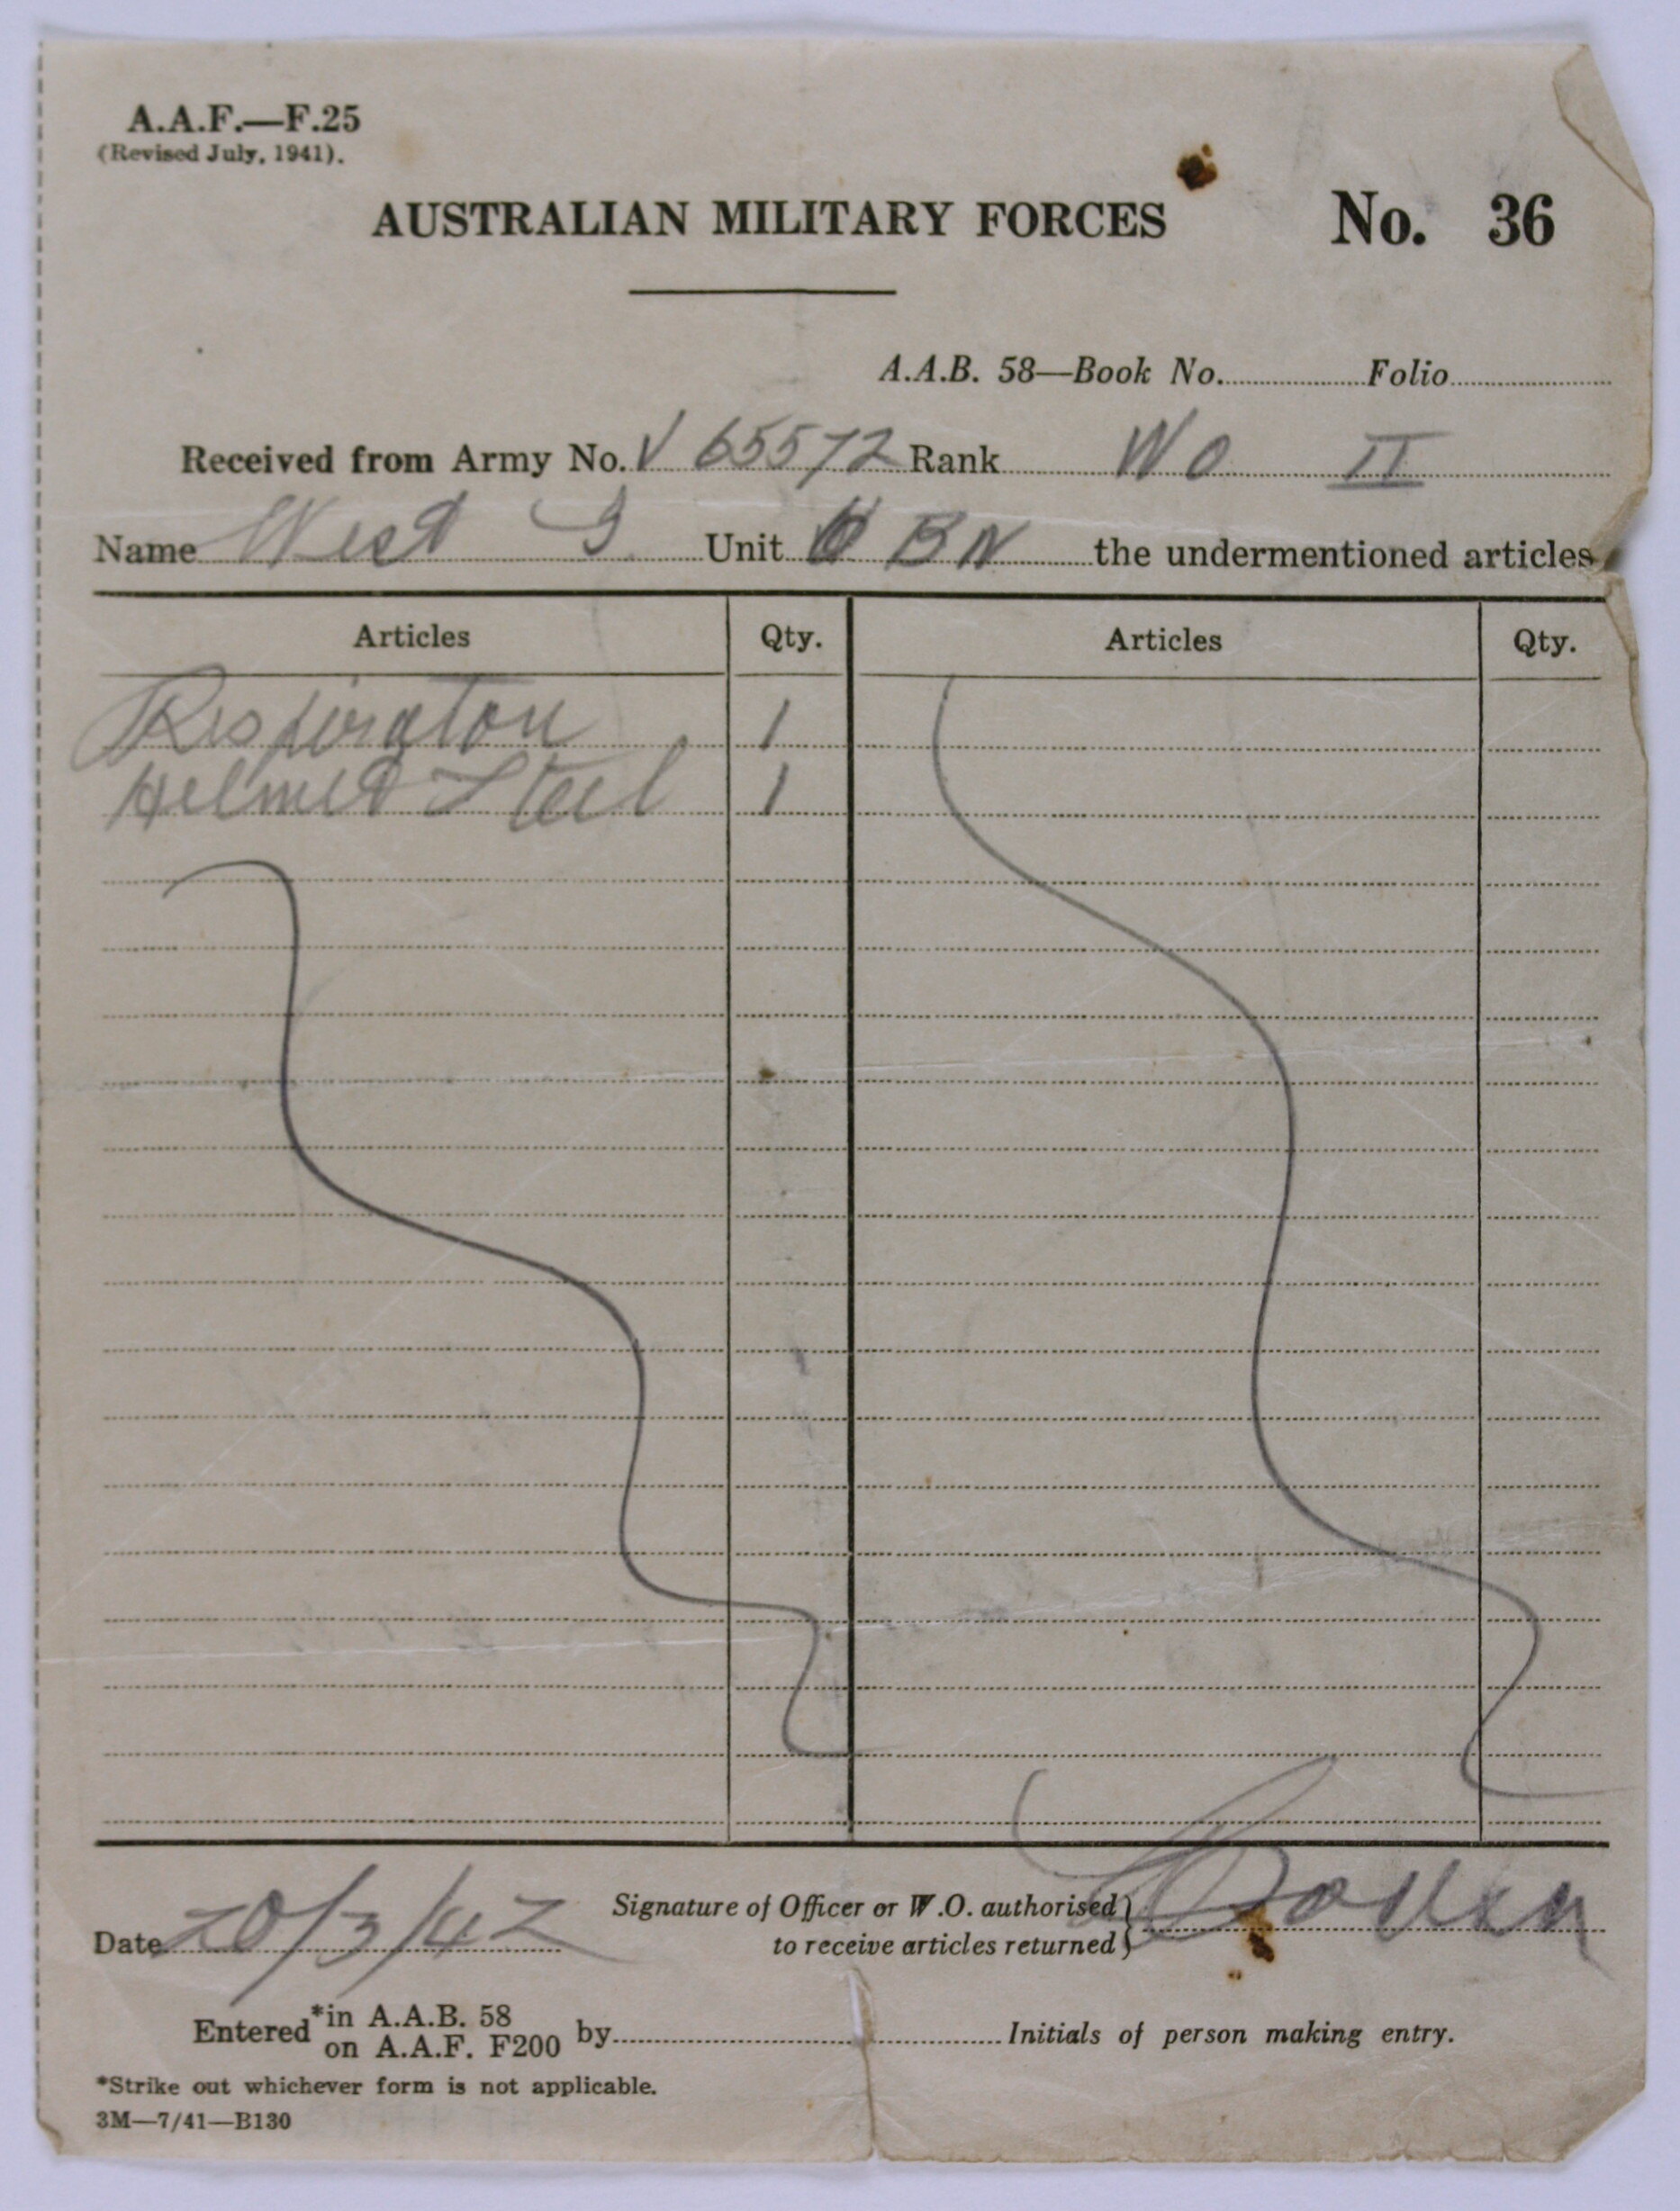 A.A.F.—F.25
(Revised July, 1941).
AUSTRALIAN MILITARY FORCES No. 36
A.A.B. 58—Book No. Folio
Received from Army No. V 65572 Rank WO II
Name West G Unit BN the undermentioned articles
Articles Qty. Articles Qty.
Respirator 1
Helmet Steel 1
Signature of Officer or W.O. authorised
to receive articles returned
Date 20/3/42
Entered *in A.A.B. 58
on A.A.F. F200 by Initials of person making entry.
*Strike out whichever form is not applicable.
3M—7/41—B130